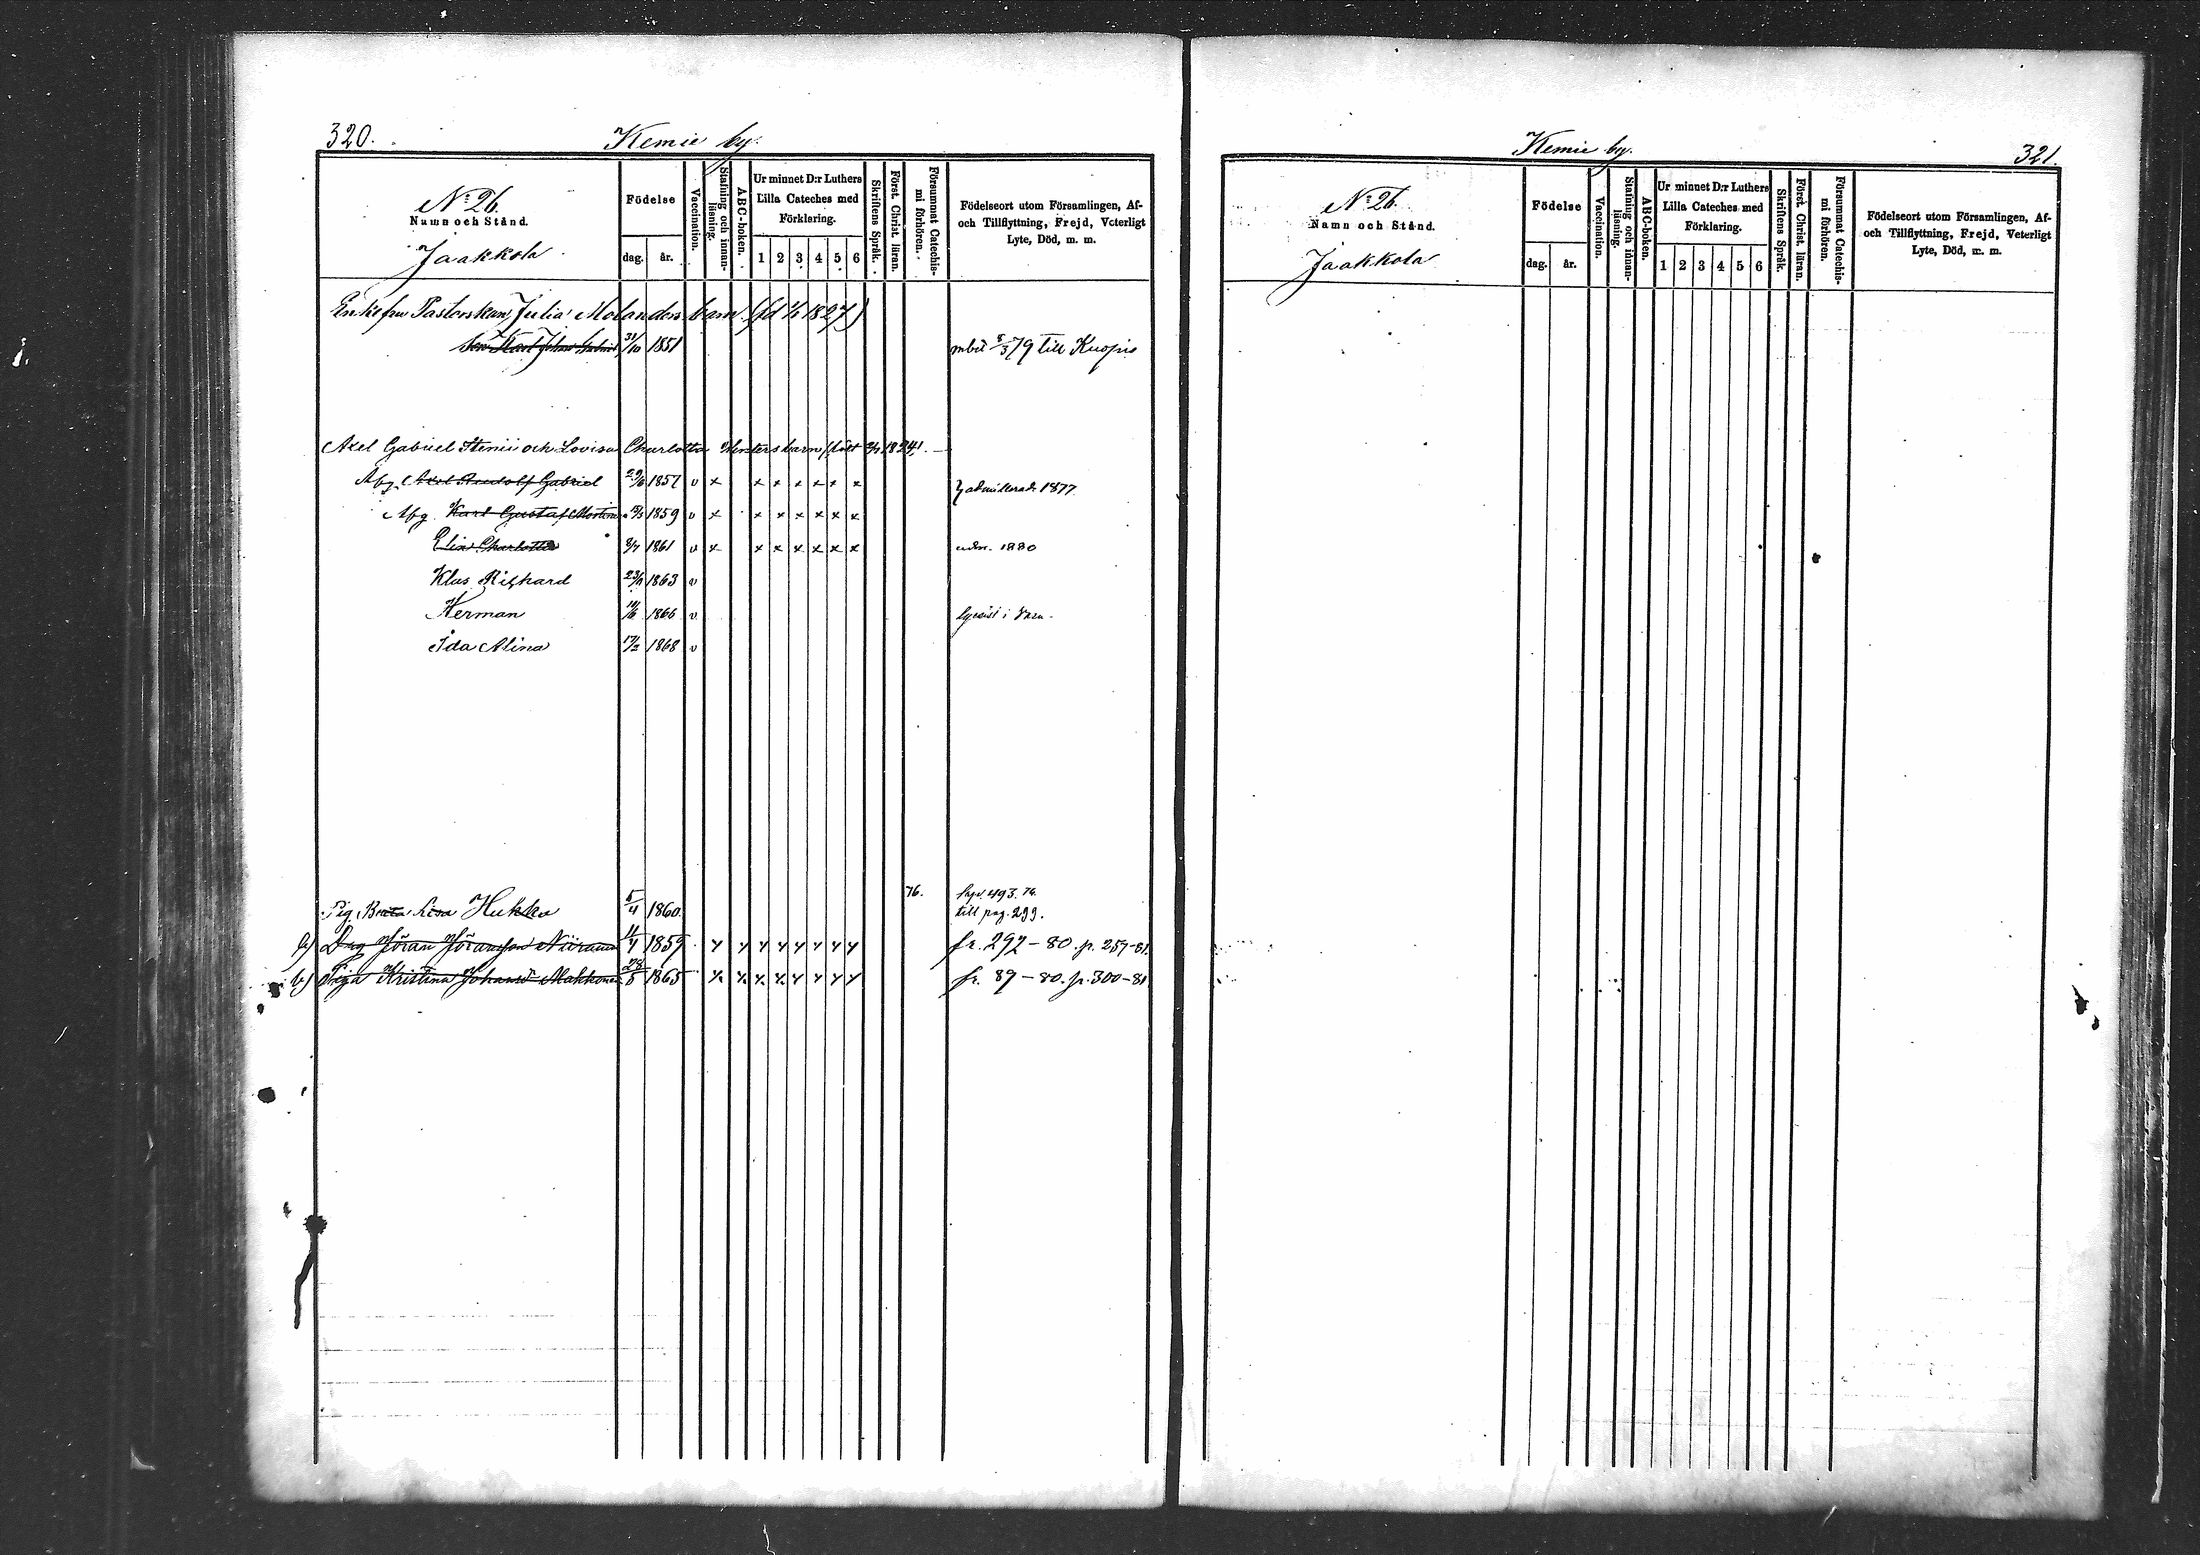 320. Kemie by.
No 26.
Namn och Stånd.
Jaakkola
Födelse
dag. år.
Vaccination.
Stafning och innan-läsning.
ABC-boken.
Ur minnet D:r Luthers Lilla Cateches med Förklaring.
1 2 3 4 5 6
Skriftens Språk.
Först. Christ. läran.
Försummat Catechis-mi förhören.
Födelseort utom Församlingen, Af- och Tillflyttning, Frejd, Veterligt Lyte, Död, m. m.
Enkefru Pastorskan Julia Molanders barn (fd 1/1 1827)
Son Karl Johan Gabriel 31/10 1851 mbet 5/3 79 till Kuopio
Axel Gabriel Stenii och Lovisa Charlotta barn 1824
Afg. Axel Rudolf Gabriel 29/6 1857 v x x x x x x x admitterad 1877
Afg Karl Gustaf 1859 v x x x x x x x
Elin Charlotta 1861 v x x x x x x x adm. 1880
Klas Rikhard 23/11 1863 v
Herman 1866 v i
Ida Alina 17/2 1868 v
Pig. Brita Lisa Hukka 5/4 1860 76. 493. 76. till pag. 299.
a) Drg Jöran Jöransson Niiranen 11/4 1859 fr. 292-80. p. 259-81.
b) Piga Kristina Johansd Makkonen 28/5 1865 fr. 89-80. p. 300-81
Kemie by. 321.
No 26.
Namn och Stånd.
Jaakkola
Födelse
dag. år.
Vaccination.
Stafning och innan-läsning.
ABC-boken.
Ur minnet D:r Luthers Lilla Cateches med Förklaring.
1 2 3 4 5 6
Skriftens Språk.
Först. Christ. läran.
Försummat Catechis-mi förhören.
Födelseort utom Församlingen, Af- och Tillflyttning, Frejd, Veterligt Lyte, Död, m. m.